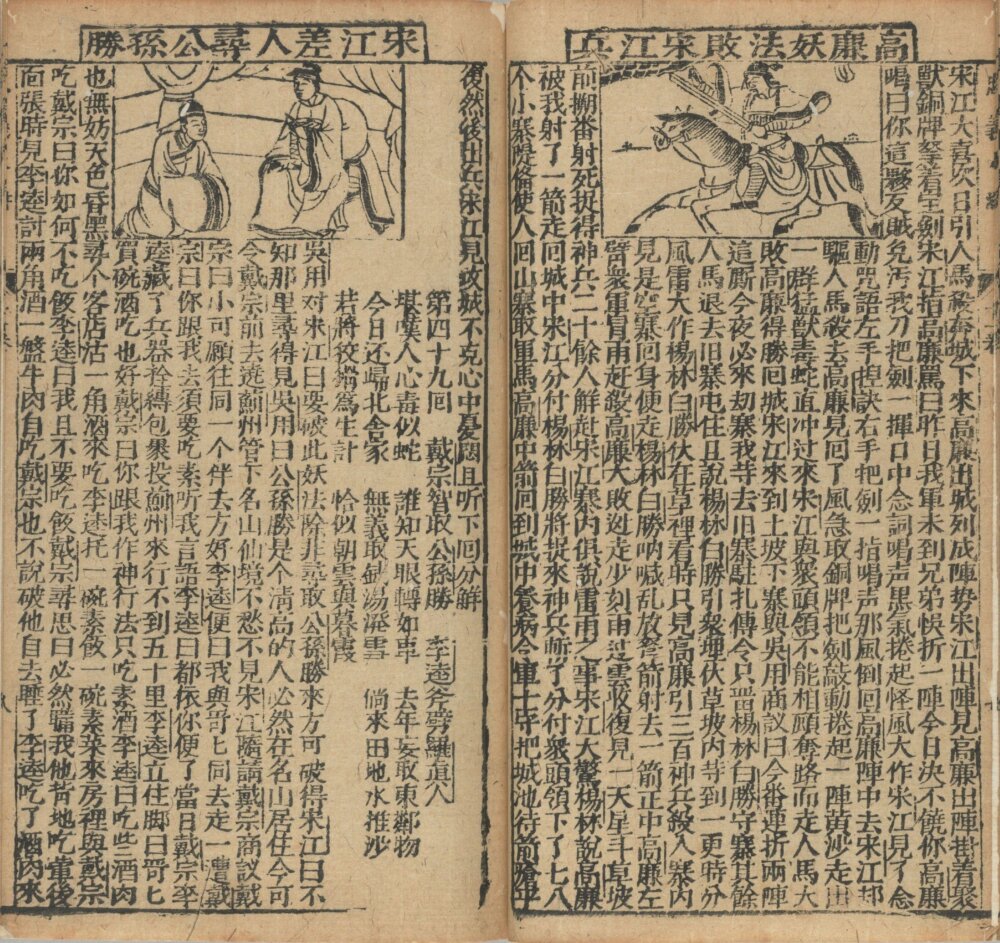 高廉妖法敗宋江兵
宋江大喜次日引人馬殺奔城下來高廉出城列成陣势宋江出陣見高廉出陣掛着聚
獸銅牌拏着宝劍宋江指高廉罵曰昨日我軍未到兄弟快折一陣今日决不饒你高廉
喝曰你這夥反賊免汚我刀把劍一揮口中念詞喝声黒氣捲起怪風大作宋江見了念
動咒語左手揑訣右手把劍一指喝声那風倒回高廉陣中去宋江却
驅人馬殺去高廉見回了風急取銅牌把劍敲動捲起一陣黃沙走出
一群猛獸毒蛇直冲过來宋江與衆頭領不能相顧奪路而走人馬大
敗高廉得勝回城宋江來到土坡下寨與吳用商議曰今番連折兩陣
這厮今夜必來刼寨我寺去旧寨駐扎傳令只畱楊林白勝守寨其餘
人馬退去旧寨屯住且說楊林白勝引衆埋伏草坡内寺到一更時分
風雷大作楊林白勝伏在草裡看時只見高廉引三百神兵殺入寨内
見是空寨回身便走楊林白勝吶喊乱放弩箭射去一箭正中高廉左
臂衆軍冒雨赶殺高廉大敗迯走少刻雨过雲收復見一天星斗草坡
前搠番射死捉得神兵二十餘人觧赴宋江寨内俱說雷雨之事宋江大驚楊林說高廉
被我射了一箭走回城中宋江分付楊林白勝將捉來神兵斬了分付衆頭領下了七八
个小寨隄俻便人回山寨取軍馬高廉中箭回到城中養病令軍士守把城池待箭瘡平
宋江差人尋公孫勝
復然後出兵宋江見攻城不克心中憂悶且听下回分觧
第四十九回 戴宗智取公孫勝 李逵斧劈羅真人
堪嘆人心毒似蛇 誰知天眼轉如車 去年妄敢東鄰物
今日还歸北舍家 無義取錢湯潑雪 倘來田地水推沙
若將狡猾爲生計 恰似朝雲與暮霞
吳用对宋江曰要破此妖法除非尋取公孫勝來方可破得宋江曰不
知那里尋得見吳用曰公孫勝是个清高的人必然在名山居住今可
令戴宗前去遶薊州管下名山仙境不愁不見宋江隨請戴宗商議戴
宗曰小可願往同一个伴去方好李逵便曰我與哥匕同去走一遭戴
宗曰你跟我去須要吃素听我言語李逵曰都依你便了當日戴宗李
逵藏了兵器拴縛包褁投薊州來行不到五十里李逵立住脚曰哥匕
買碗酒吃也好戴宗曰你跟我作神行法只吃素酒李逵曰吃些酒肉
也無妨天色昏黑尋个客店沽一角酒來吃李逵托一碗素飯一碗素菜來房裡與戴宗
吃戴宗曰你如何不吃飯李逵曰我且不要吃飯戴宗尋思曰必然瞞我他背地吃軍後
面張時見李逵討兩角酒一盤牛肉自吃戴宗也不說破他自去睡了李逵吃了酒肉來